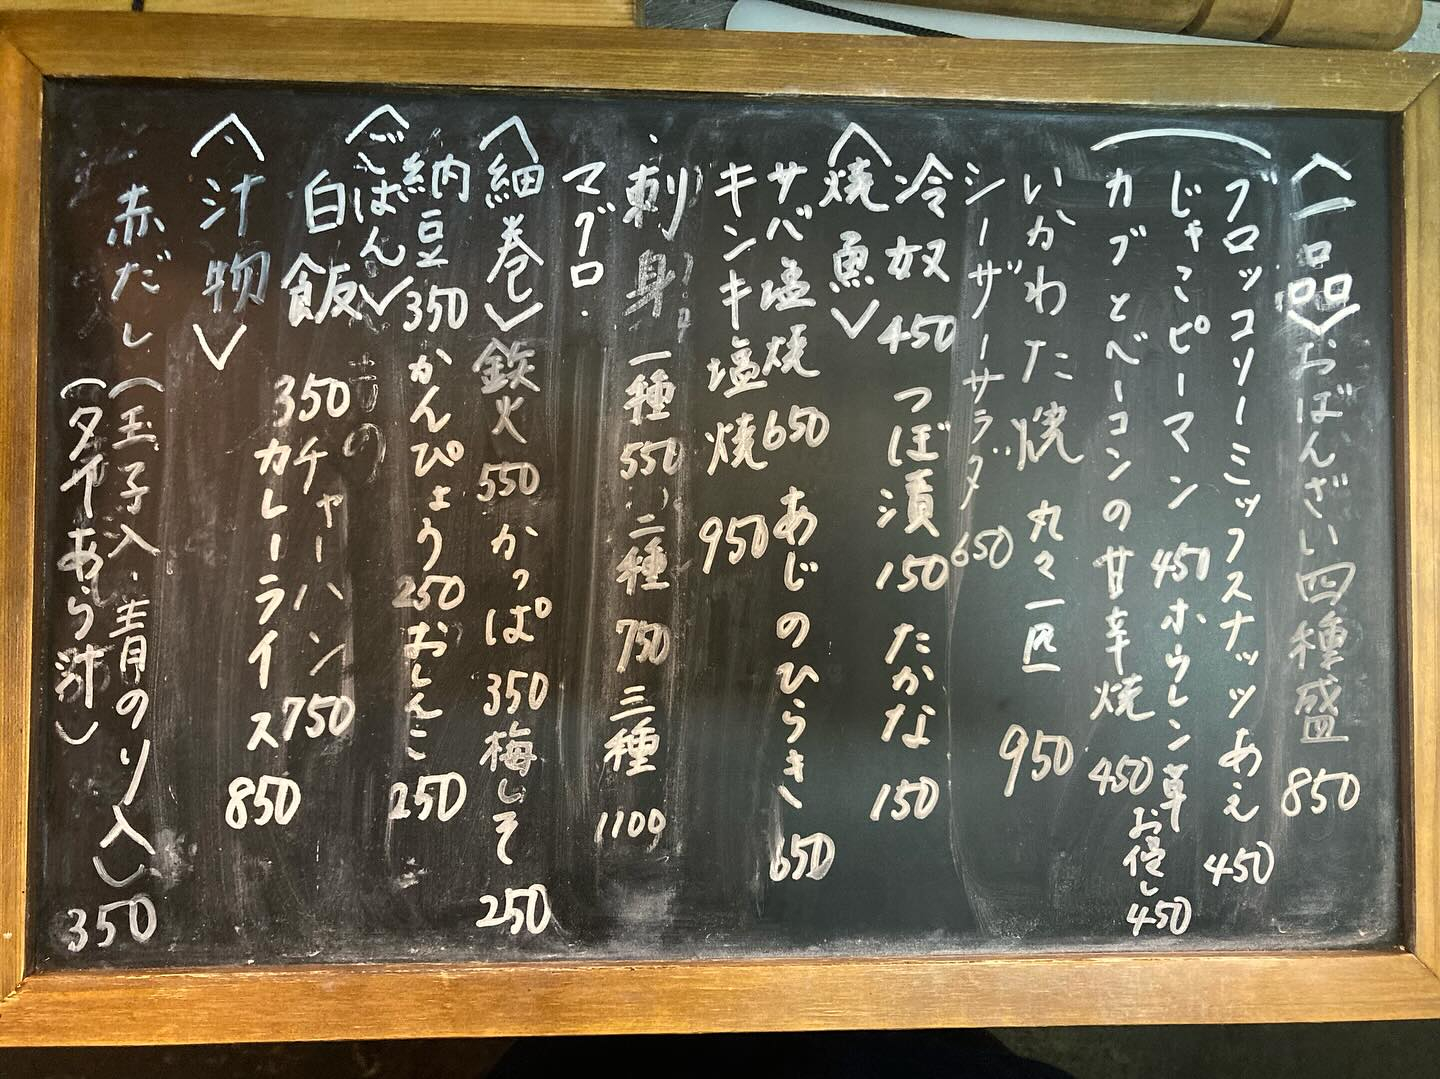 〈一品〉おばんざい四種盛 850
ブロッコリーミックスナッツあえ 450
じゃこピーマン 450 ホウレン草お浸し 450
カブとベーコンの甘辛焼 450
いかわた焼 丸々一匹 950
シーザーサラダ 650
冷奴 450 つぼ漬 150 たかな 150
〈焼魚〉
サバ塩焼 650 あじのひらき 650
キンキ塩焼 950
刺身 一種 550 二種 750 三種 1100
マグロ
〈細巻〉鉄火 550 かっぱ 350 梅しそ 250
納豆 350 かんぴょう 250 おしんこ 250
〈ごはん〉
白飯 350 チャーハン 750
カレーライス 850
〈汁物〉
赤だし (玉子入・青のり入)
(タイあら汁) 350